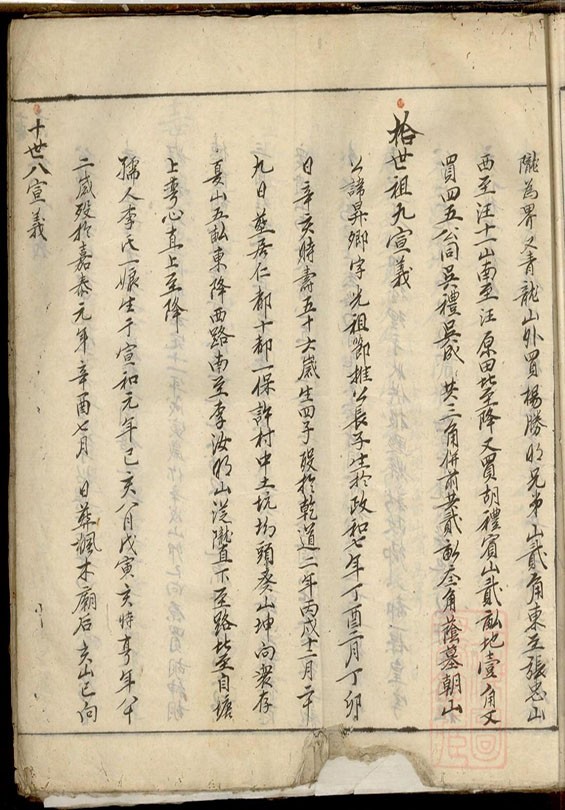 隴為界又青龍山外買楊勝明兄弟山貳角東至張忠山
西至汪十一山南至汪原田北至降又買胡禮賓山貳畝地壹角又
買四五公同吳禮吳成共三角併前共貳畝叁角蔭墓朝山
拾世祖九宣義
公諱昇卿字光祖節推公長子生於政和七年丁酉二月丁卯
日辛亥時壽五十六歲生四子歿於乾道二年丙戌十二月二十
九日葬居仁都十都一保許村中土坑坳頭癸山坤向衆存
夏山五畝東降西路南至李汝明山從隴直下至路北至自墻
上彎心直上至降
孺人李氏一娘生于宣和元年己亥八月戊寅亥時享年八十
二歲歿於嘉泰元年辛酉七月 日葬楓木廟后亥山巳向
十世八宣義